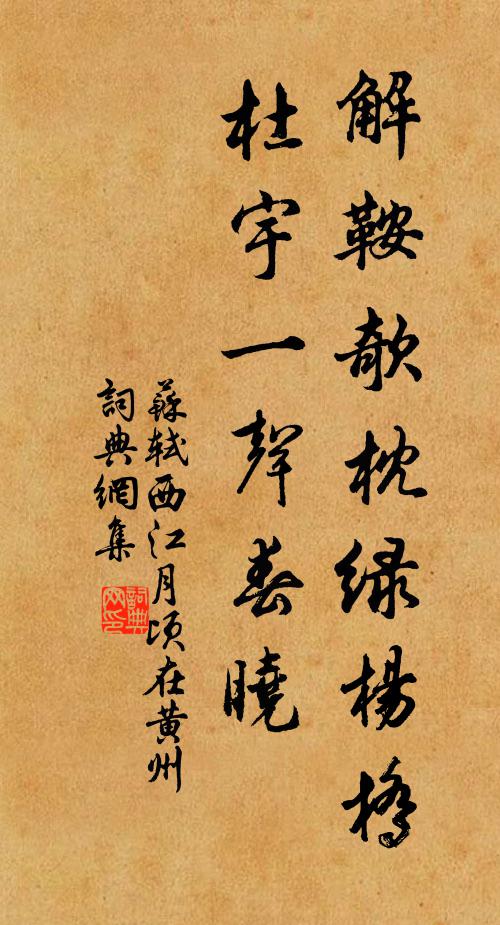 解鞍欹枕綠楊橋
杜宇一聲春曉
蘇軾西江月頃在黃州
詞典網集
詞典网印